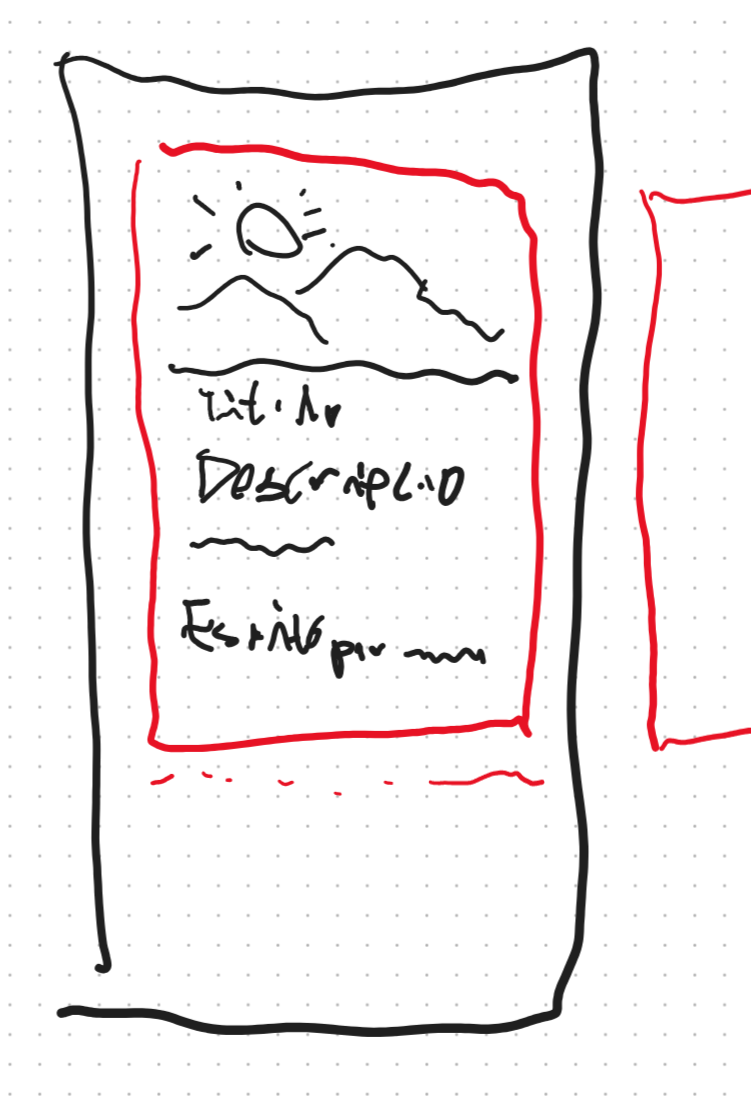 Titulo
Descripcio
Escrito por